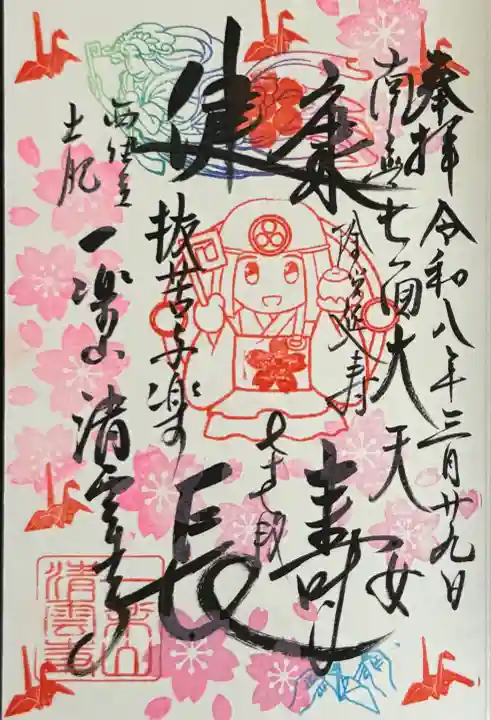 奉拝 令和八年三月廿九日
南無七面大天女
健康
長寿
抜苦与楽の
西伊豆
土肥
一楽山 清雲寺
一楽山
清雲寺